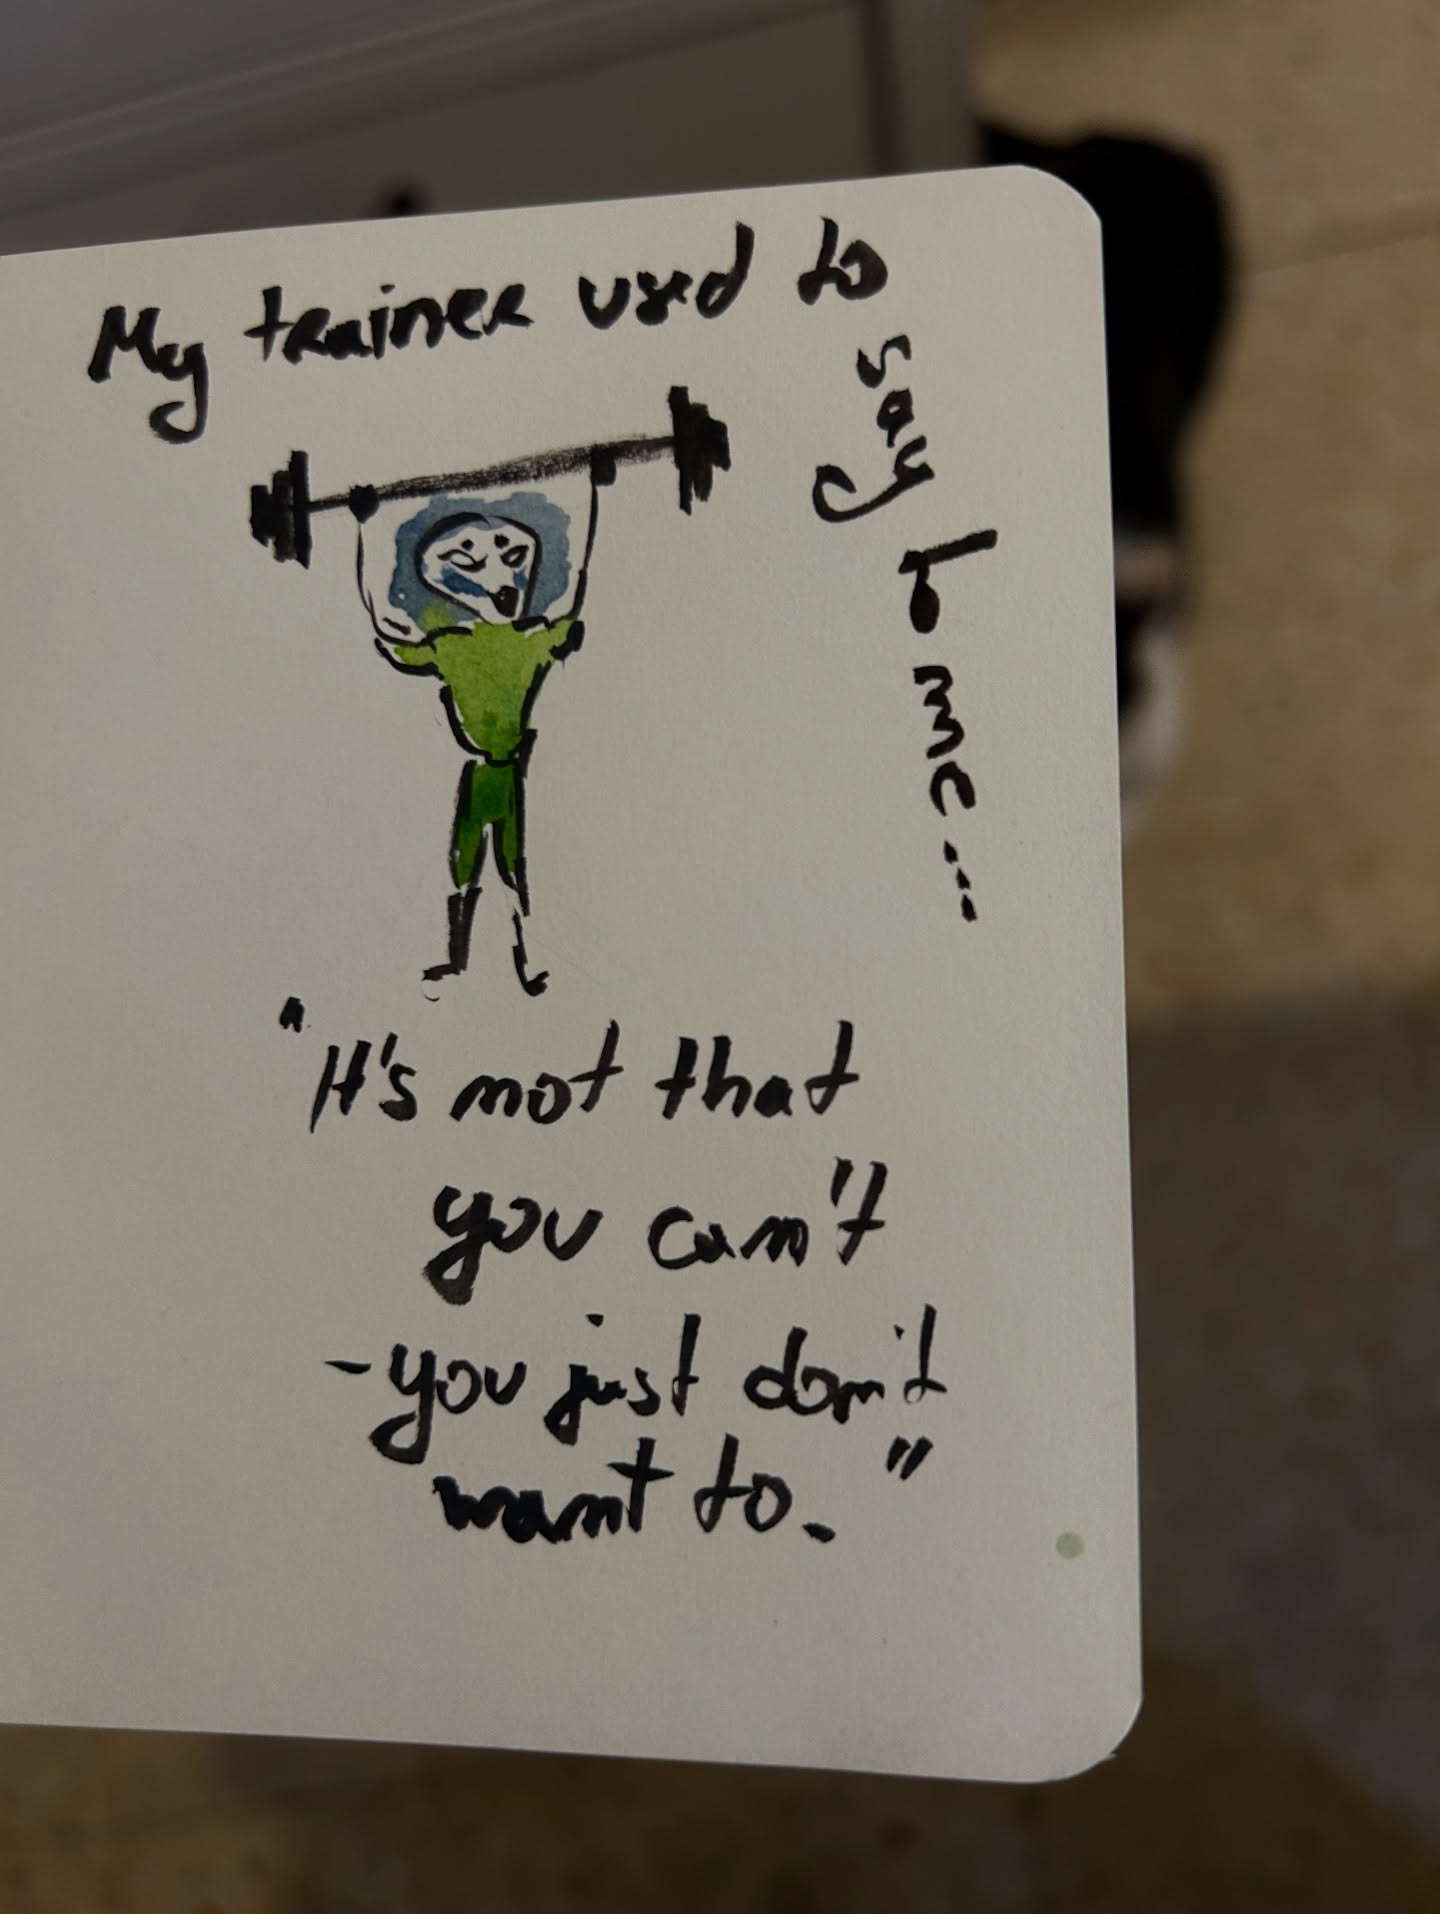 My trainer used to
say to me...
"It's not that
you can't
- you just don't
want to."